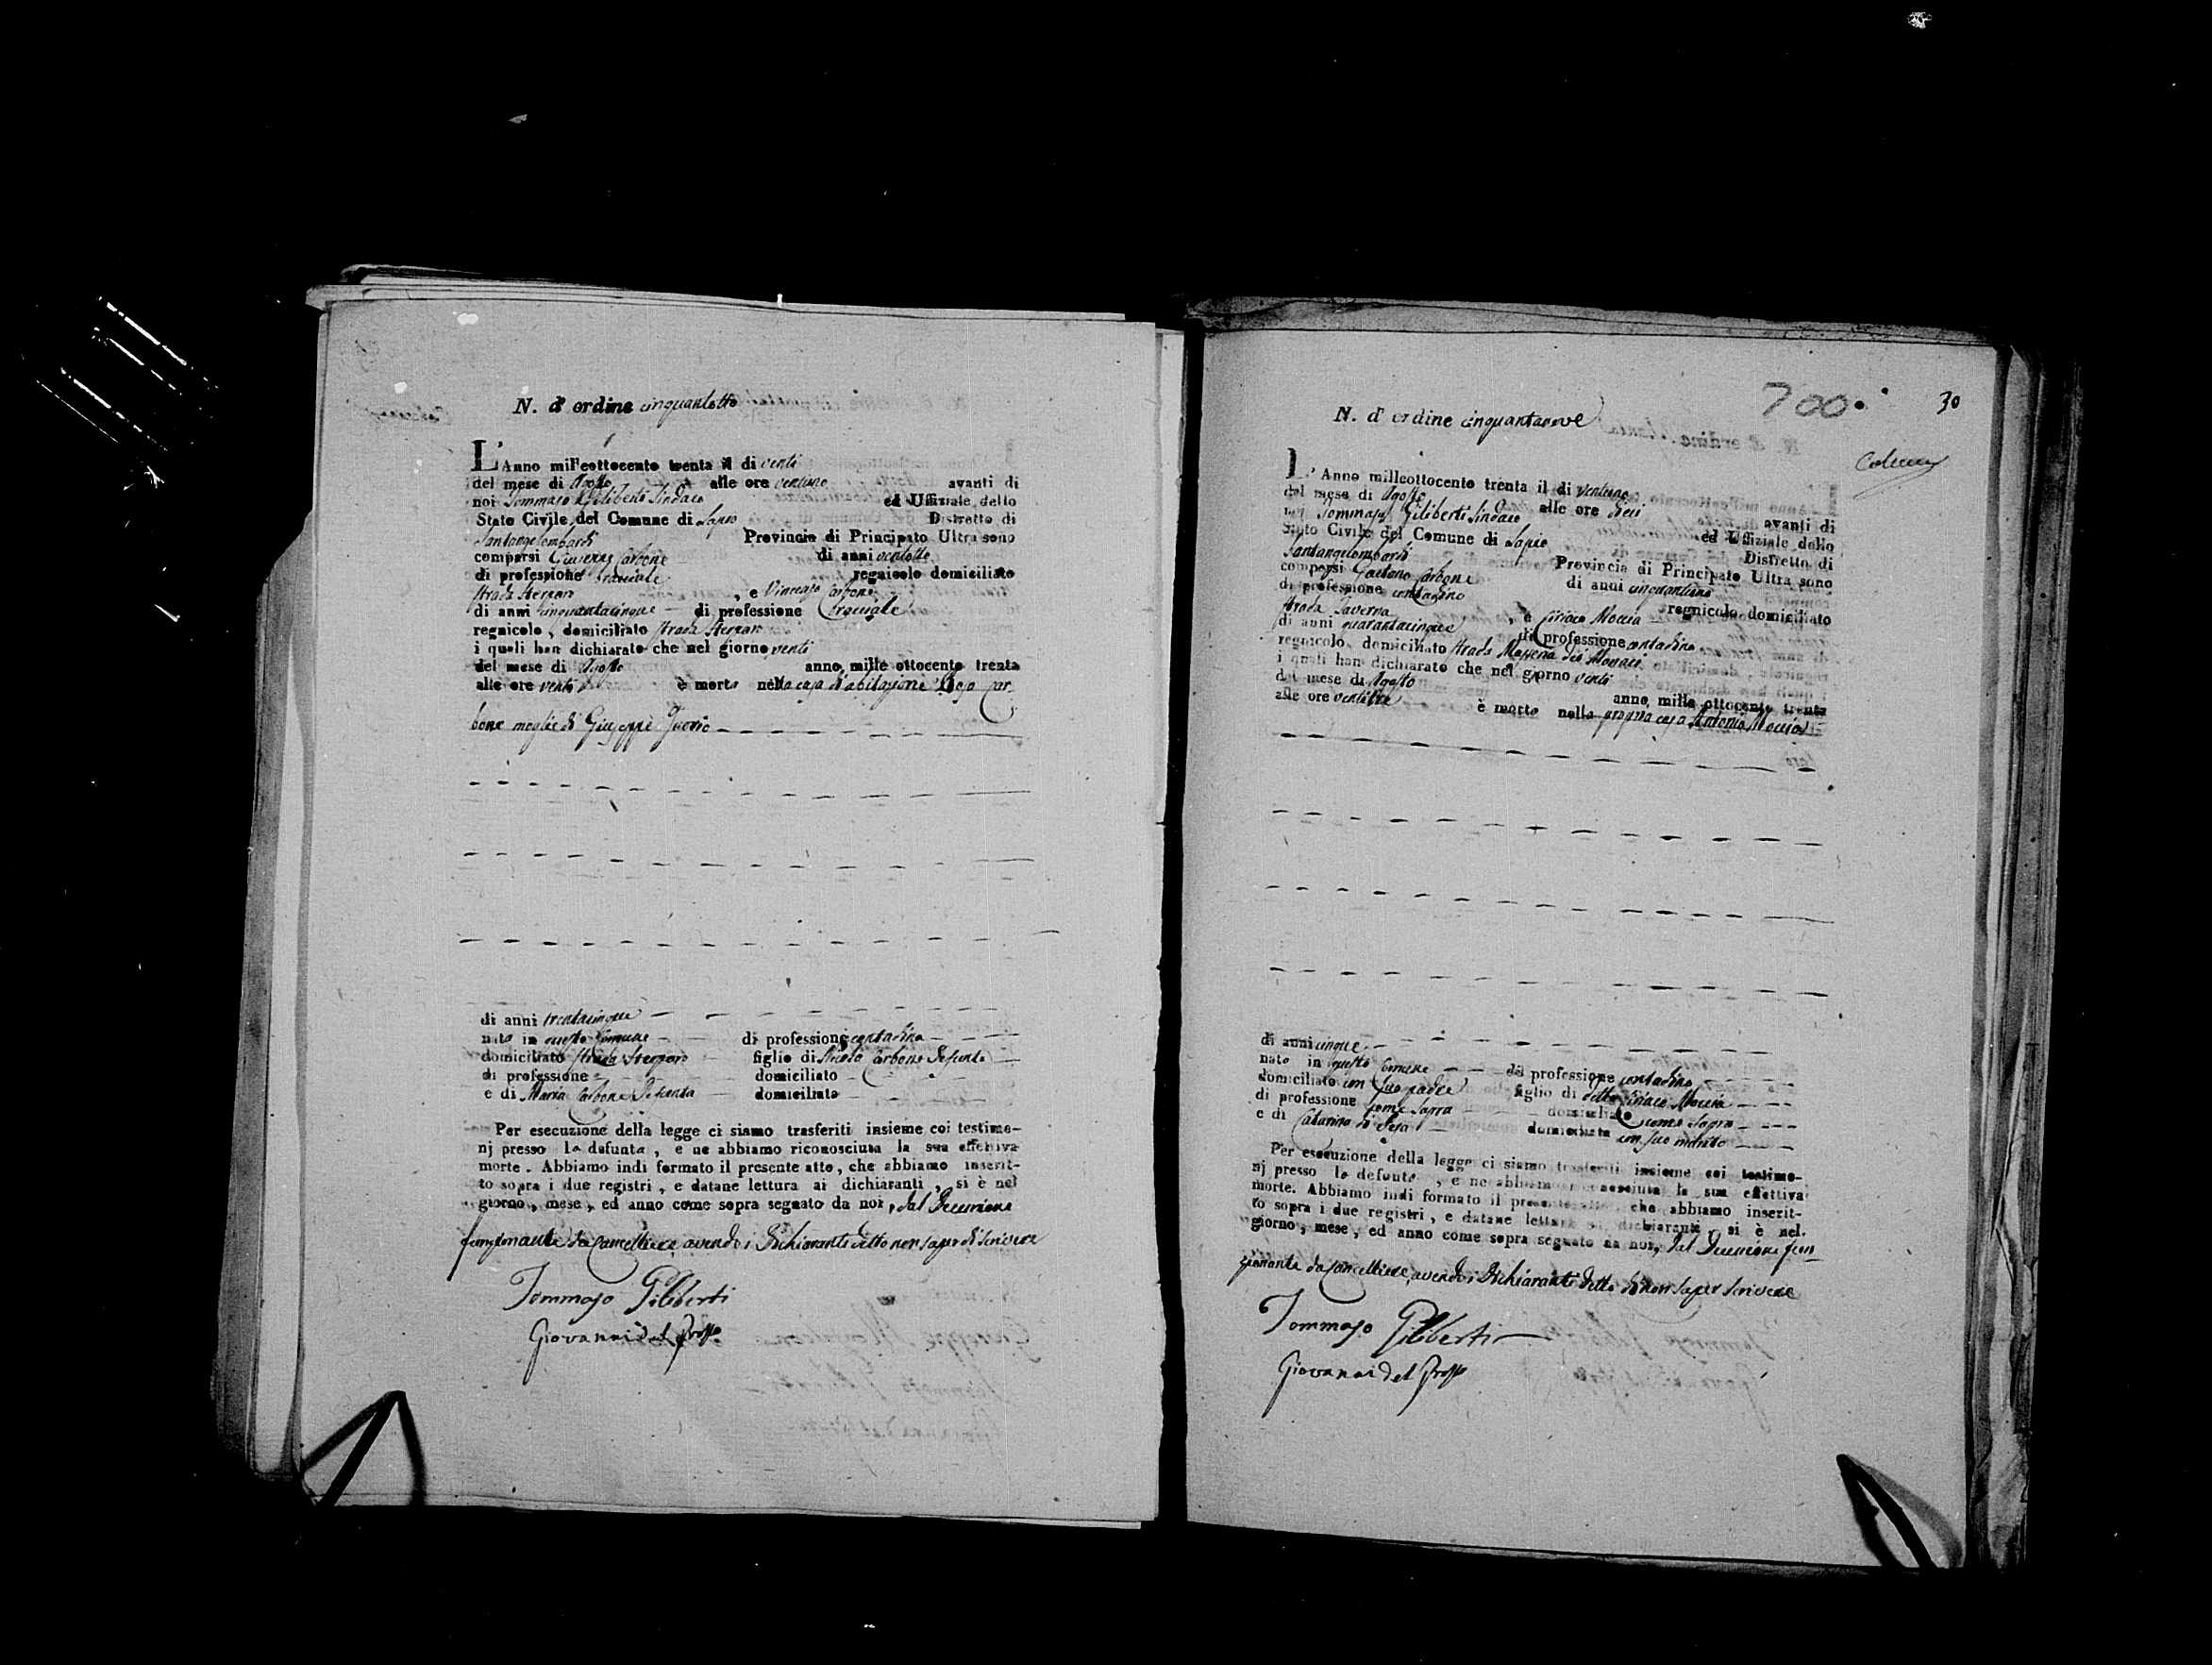 N. d' ordine cinquantotto
L'Anno mill'eottocento trenta il di venti
del mese di Agosto alle ore ventuno avanti di
noi Tommaso Giliberti Sindaco ed Uffiziale dello
Stato Civile del Comune di Lapio Distretto di
Santangelombardi Provincia di Principato Ultra sono
comparsi Carbone di anni ventotto
di professione bracciale regnicolo domiciliato
strada , e Vincenzo Carbone
di anni cinquantacinque di professione bracciale
regnicolo , domiciliato strada
i quali han dichiarato che nel giorno venti
del mese di Agosto anno mille ottocento trenta
alle ore venti è morta nella casa d'abitazione Car-
bone moglie di Giuseppe
di anni trentacinque
nata in questo Comune di professione contadina
domiciliato strada figlio di Nicola Carbone defunto
di professione domiciliato
e di Maria Carbone defunta domiciliata
Per esecuzione della legge ci siamo trasferiti insieme coi testimo-
nj presso la defunta , e ne abbiamo riconosciuta la sua effettiva
morte . Abbiamo indi formato il presente atto, che abbiamo inserit-
to sopra i due registri , e datane lettura ai dichiaranti , si è nel
giorno, mese, ed anno come sopra segnato da noi, dal Decurione
funzionante da Cancelliere avendo i dichiaranti detto non saper di scrivere
Tommaso Giliberti
Giovanni del Grosso
700.
30
N. d' ordine cinquantanove
L'Anno milleottocento trenta il di ventuno
del mese di Agosto alle ore dieci avanti di
noi Tommaso Giliberti Sindaco ed Uffiziale dello
Stato Civile del Comune di Lapio Distretto di
Santangelombardi Provincia di Principato Ultra sono
comparsi Gaetano Carbone di anni cinquantuno
di professione contadino regnicolo domiciliato
strada Taverna , e Ciriaco Moccia
di anni quarantacinque di professione contadino
regnicolo, domiciliato strada Masseria dei Monaci
i quali han dichiarato che nel giorno venti
del mese di Agosto anno mille ottocento trenta
alle ore ventitre è morto nella propria casa Antonio Moccia
di anni cinque
nato in questo Comune di professione contadino
domiciliato con suo padre figlio di detto Ciriaco Moccia
di professione come sopra domiciliato come sopra
e di Catarina domiciliata con suo marito
Per esecuzione della legge ci siamo trasferiti insieme coi testimo-
nj presso lo defunto , e ne abbiamo riconosciuta la sua effettiva
morte. Abbiamo indi formato il presente atto, che abbiamo inserit-
to sopra i due registri , e datane lettura ai dichiaranti , si è nel
giorno, mese, ed anno come sopra segnato da noi, dal Decurione fun-
zionante da Cancelliere, avendo i dichiaranti detto di non saper scrivere
Tommaso Giliberti
Giovanni del Grosso